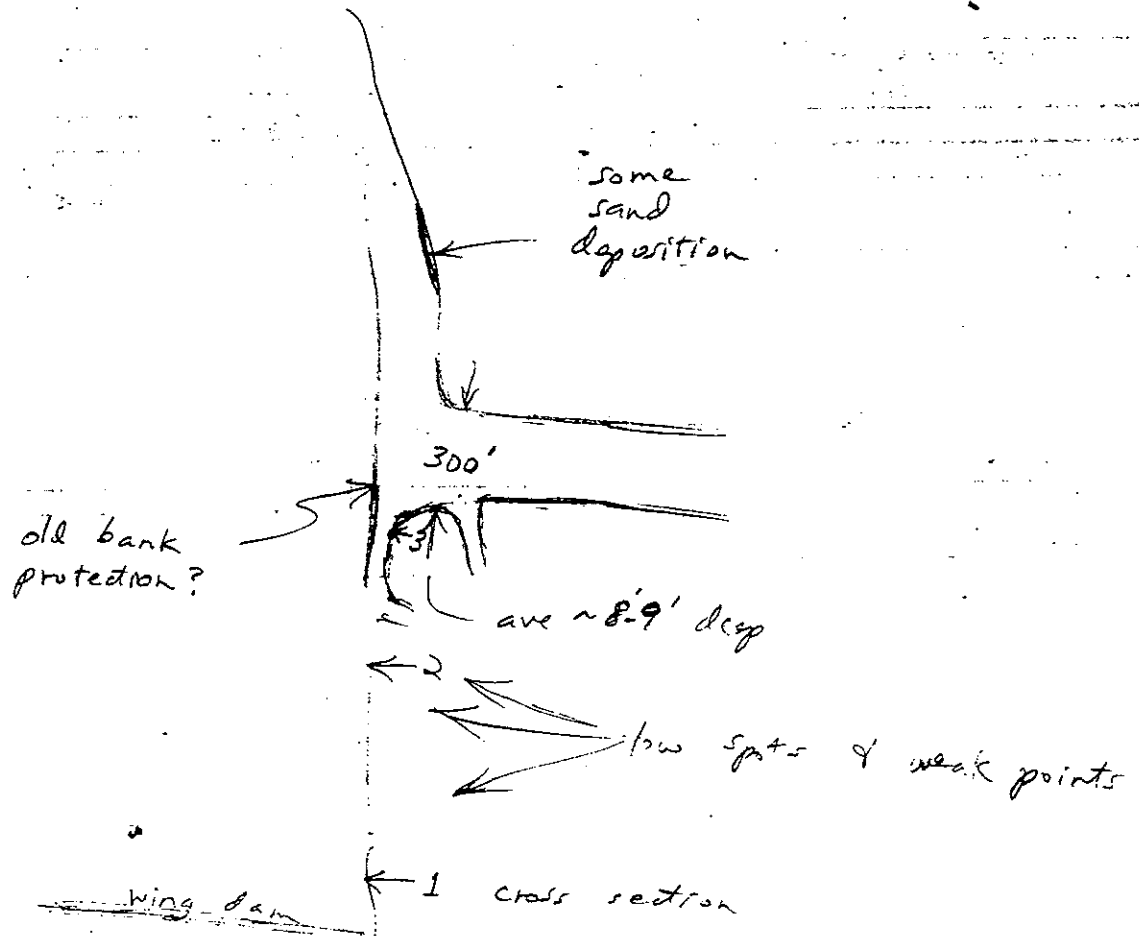 some
sand
deposition
300'
old bank
protection?
3
ave ~8'-9' deep
2
low spots & weak points
1 cross section
wing dam